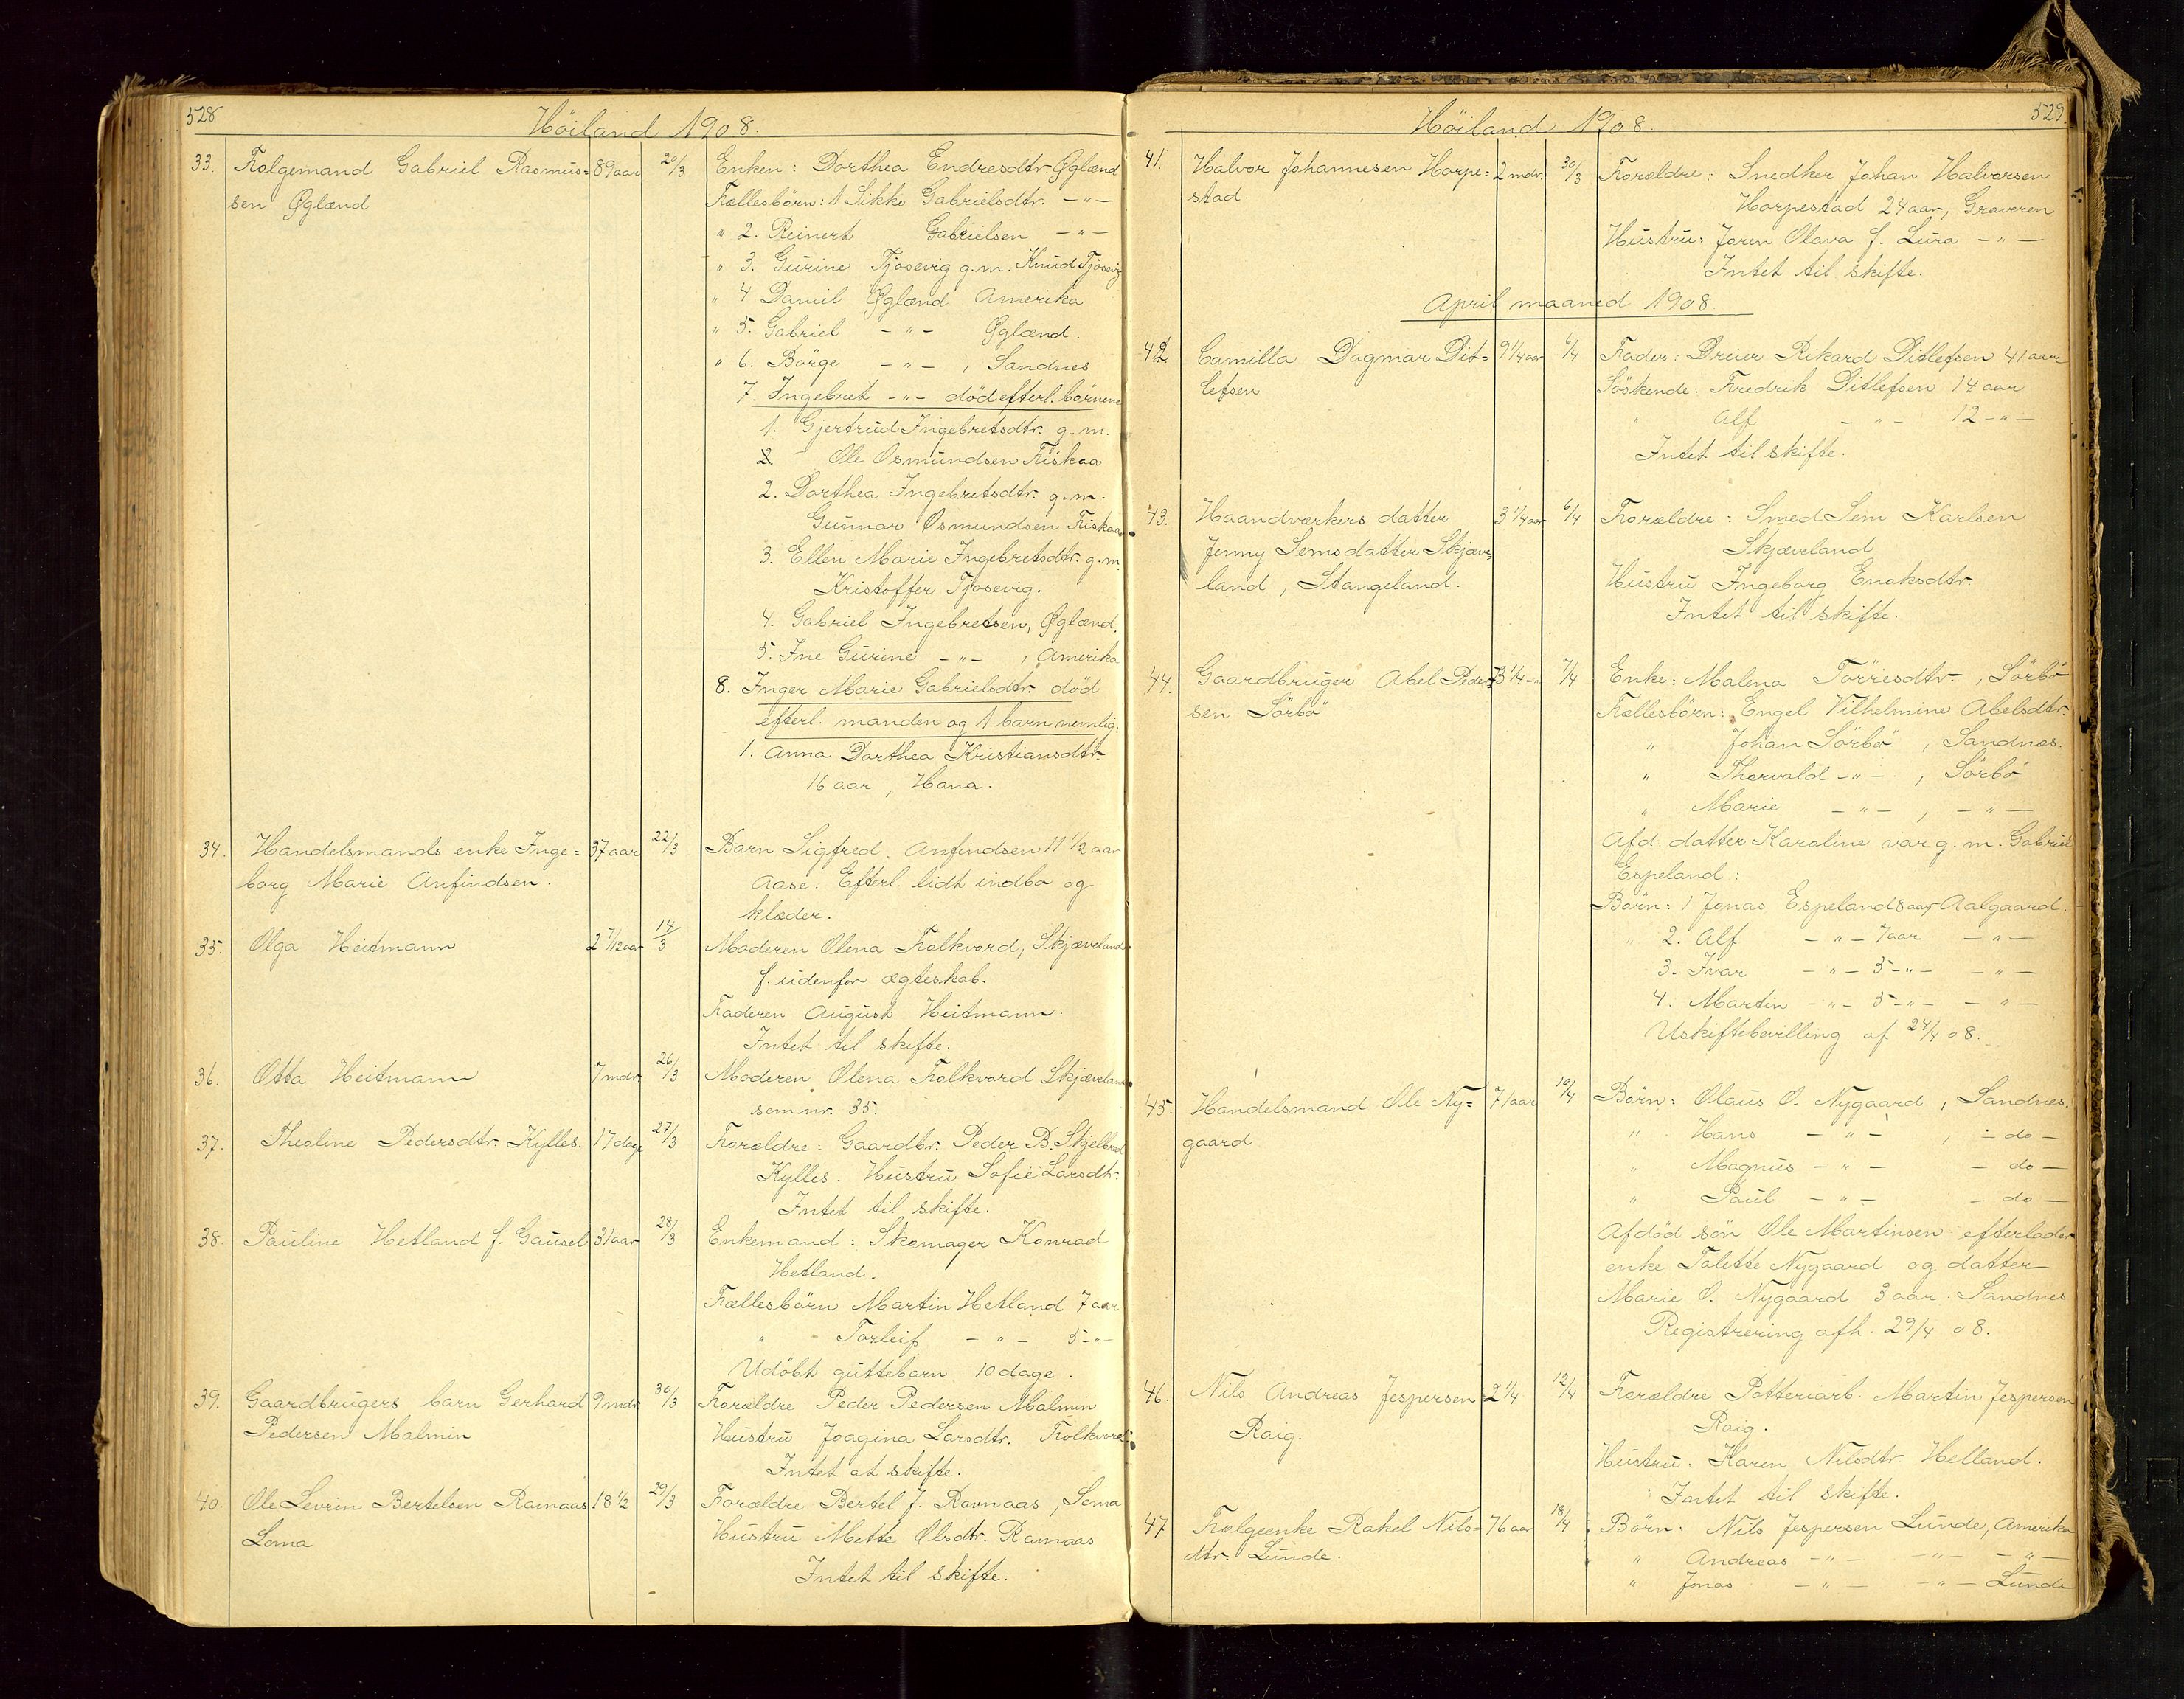 528
Höiland 1908.
33. Folgemand Gabriel Rasmus= 89 aar 20/3 Enken: Dorthea Endresdtr. Øglænd
sen Øglænd Fællesbörn: 1 Sikke Gabrielsdtr. -"-
" 2. Reinert Gabrielsen -"-
" 3. Gurine Tjosevig g.m. Knud Tjosevig
" 4 Daniel Øglænd Amerika
" 5. Gabriel -"- Øglænd.
" 6. Börge -"- , Sandnes
7. Ingebret -"- död efterl. börnene
1. Gjertrud Ingebretsdtr. g.m.
2 Ole Osmundsen Fiskaa
2. Dorthea Ingebretsdtr. g.m.
Gunnar Osmundsen Fiskaa
3. Ellen Marie Ingebretsdtr. g.m.
Kristoffer Tjosevig.
4. Gabriel Ingebretsen, Øglænd.
5. Ine Gurine -"- , Amerika
8. Inger Marie Gabrielsdtr. död
efterl. manden og 1 barn nemlig:
1. Anna Dorthea Kristiansdtr.
16 aar, Hana.
34. Handelsmands enke Inge= 37 aar 22/3 Barn Sigfred. Anfindsen 11 1/2 aar
borg Marie Anfindsen. Aase: Efterl. lidt indbo og
klæder.
35. Olga Heitmann 2 7/12 aar 14/3 Moderen Olena Folkvord, Skjæveland
f. udenfor ægteskab.
Faderen August Heitmann.
Intet til skifte.
36. Otta Heitmann 7 mdr. 26/3 Moderen Olena Folkvord Skjæveland
som nr. 35.
37. Theoline Pedersdtr. Kylles. 17 dage 27/3 Forældre: Gaardbr. Peder B. Skjelbred
Kylles. Hustru Sofie Larsdtr.
Intet til skifte.
38. Pauline Hetland f. Gausel 31 aar 28/3 Enkemand: Skomager Konrad
Hetland.
Fællesbörn Martin Hetland 7 aar
" Torleif -"- 5-"-
Udöbt guttebarn 10 dage.
39. Gaardbrugers barn Gerhard 9 mdr. 30/3 Forældre Peder Pedersen Malmin
Pedersen Malmin Hustru Joagina Larsdtr. Folkvord
Intet at skifte.
40. Ole Levrin Bertelsen Ramnaas. 18 1/2 29/3 Forældre Bertel J. Ravnaas, Soma
Soma Hustru Mette Olsdtr. Ramaas
Intet til skifte.
529.
Höiland 1908.
41. Halvor Johannesen Horpe= 2 mdr. 30/3 Forældre: Snedker Johan Halvorsen
stad. Horpestad 24 aar, Graveren
Hustru: Joren Olava f. Lura -"-
Intet til skifte.
April maaned 1908.
42. Camilla Dagmar Dit= 9 1/4 aar 6/4 Fader: Dreier Rikard Ditlefsen 41 aar
lefsen Söskende: Fredrik Ditlefsen 14 aar
" Alf -"- 12-"-
Intet til skifte.
43. Haandværkers datter 3 1/4 aar 6/4 Forældre: Smed Sem Karlsen
Jenny Semsdatter Skjæve= Skjæveland
land, Stangeland. Hustru Ingeborg Enoksdtr.
Intet til skifte.
44. Gaardbruger Abel Peder= 73 1/4-"- 7/4 Enke: Malena Törresdtr. , Sörbö
sen Sörbö Fællesbörn: Engel Vilhelmine Abelsdtr.
" Johan Sörbö , Sandnæs.
" Thorvald -"- , Sörbö
" Marie -"- , -"-
Afd. datter Karoline var g.m. Gabriel
Espeland:
Börn: 1 Jonas Espeland 8 aar Aalgaard.
" 2. Alf -"- 7 aar -"-
3. Ivar -"- 5-"- -"-
4. Martin -"- 5-"- -"-
Uskiftebevilling af 24/4 08.
45. Handelsmand Ole Ny= 71 aar 10/4 Börn: Olaus O. Nygaard, Sandnes.
gaard " Hans -"- , - do -
" Magnus -"- - do -
" Paul -"- - do -
Afdöd sön Ole Martinsen efterlader
enke Talette Nygaard og datter
Marie O. Nygaard 3 aar. Sandnes
Registrering afh. 29/4 08.
46. Nils Andreas Jespersen 2 1/4 12/4 Forældre Potteriarb. Martin Jespersen
Raig. Raig.
Hustru. Karen Nilsdtr. Helland.
Intet til skifte.
47 Folgeenke Rakel Nils= 76 aar 18/4 Börn: Nils Jespersen Lunde, Amerika
dtr. Lunde. " Andreas -"- -"- -"-
" Jonas -"- -"- Lunde